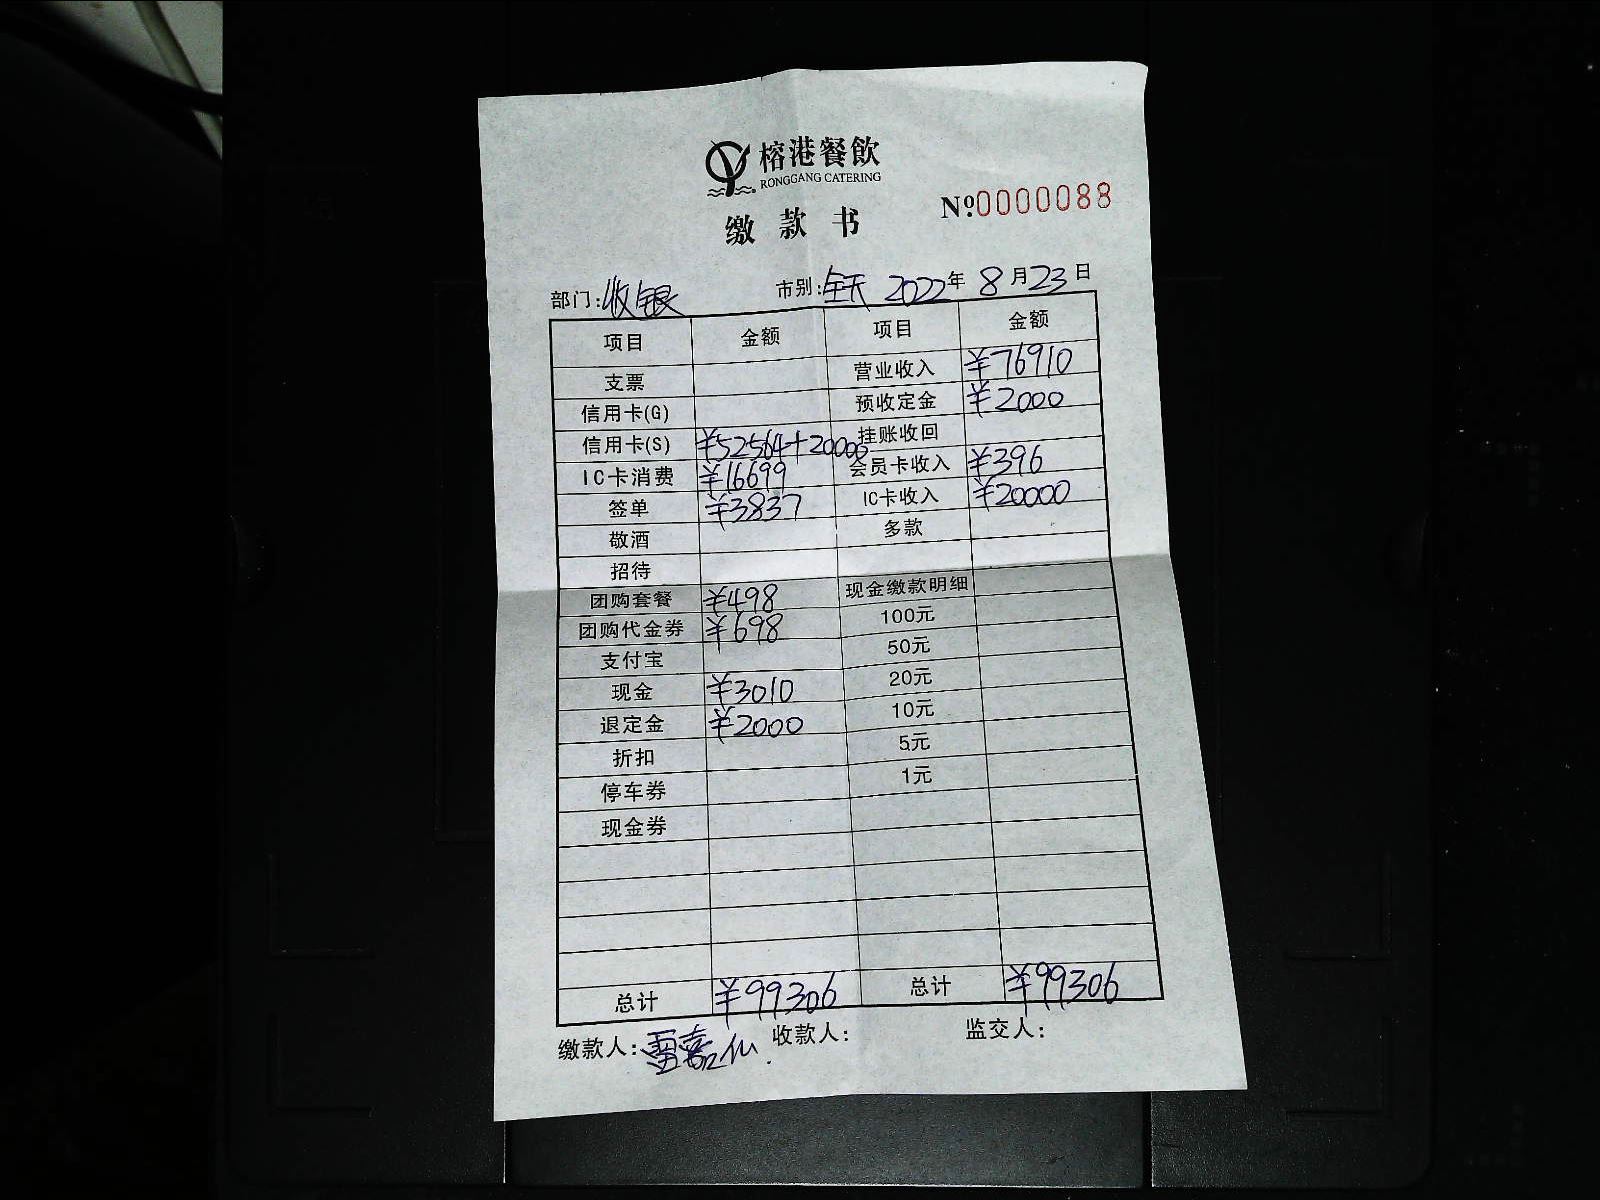 榕港餐飲
RONGGANG CATERING
缴款书
№:0000088
部门:收银 市别:全天 2022年8月23日
项目 金额 项目 金额
支票 营业收入 ¥76910
信用卡(G) 预收定金 ¥2000
信用卡(S) ¥52564+20000 挂账收回
IC卡消费 ¥16699 会员卡收入 ¥396
签单 ¥3837 IC卡收入 ¥20000
敬酒 多款
招待
团购套餐 ¥498 现金缴款明细
团购代金券 ¥698 100元
支付宝 50元
现金 ¥3010 20元
退定金 ¥2000 10元
折扣 5元
停车券 1元
现金券
总计 ¥99306 总计 ¥99306
缴款人:雷嘉仙 收款人: 监交人: